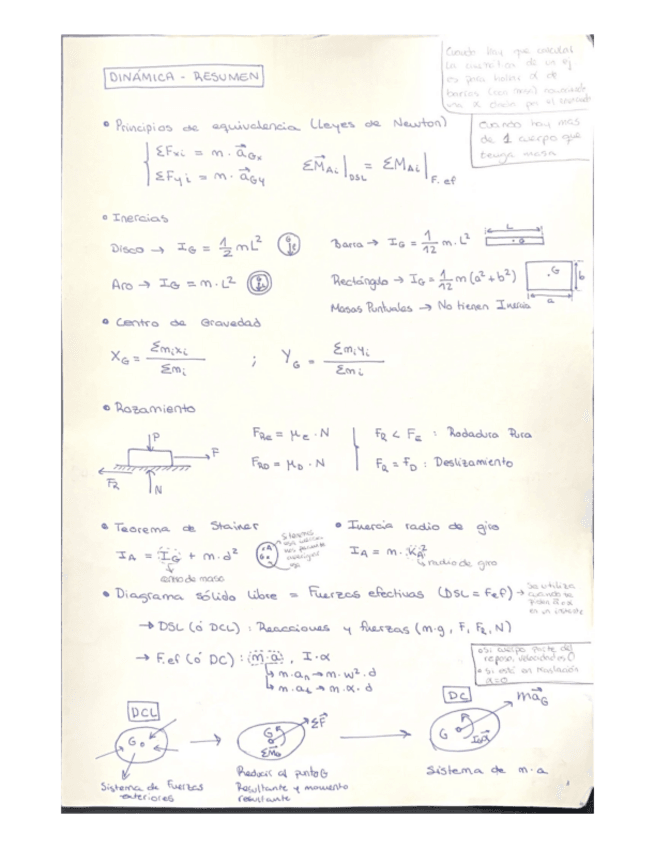 DINÁMICA - RESUMEN
Cuando hay que calcular
la cinética de un ej
es para hallar α de
barras (con masa)
Cuando hay mas
de 1 cuerpo que
tenga masa
• Principios de equivalencia (Leyes de Newton)
ΣFxi = m · aGx
ΣFyi = m · aGy
ΣMAi|DSL = ΣMAi|F.ef
• Inercias
Disco → IG = 1/2 mL²
Barra → IG = 1/12 m · L²
L
G
Aro → IG = m · L²
Rectángulo → IG = 1/12 m (a² + b²)
G
b
a
Masas Puntuales → No tienen Inercia
• Centro de Gravedad
XG = Σmixi / Σmi ; YG = Σmiyi / Σmi
• Rozamiento
P
F
FR
N
FRe = μe · N
FRD = μD · N
FR < FE : Rodadura Pura
FR = fD : Deslizamiento
• Teorema de Stainer
IA = IG + m · d²
A
G
centro de masa
• Inercia radio de giro
IA = m · KA²
radio de giro
• Diagrama sólido libre = Fuerzas efectivas (DSL = Fef) →
Se utiliza
→ DSL (ó DCL) : Reacciones y fuerzas (m·g, F, FR, N)
→ F.ef (ó DC) : m·a , I·α
→ m·an → m·w²·d
→ m·at → m·α·d
• Si cuerpo parte del
reposo, velocidades 0
• Si está en traslación
α=0
DCL
G
Sistema de Fuerzas
exteriores
ΣF
G
ΣMG
Reducir al punto G
Resultante y momento
resultante
DC
maG
G
IGα
Sistema de m·a